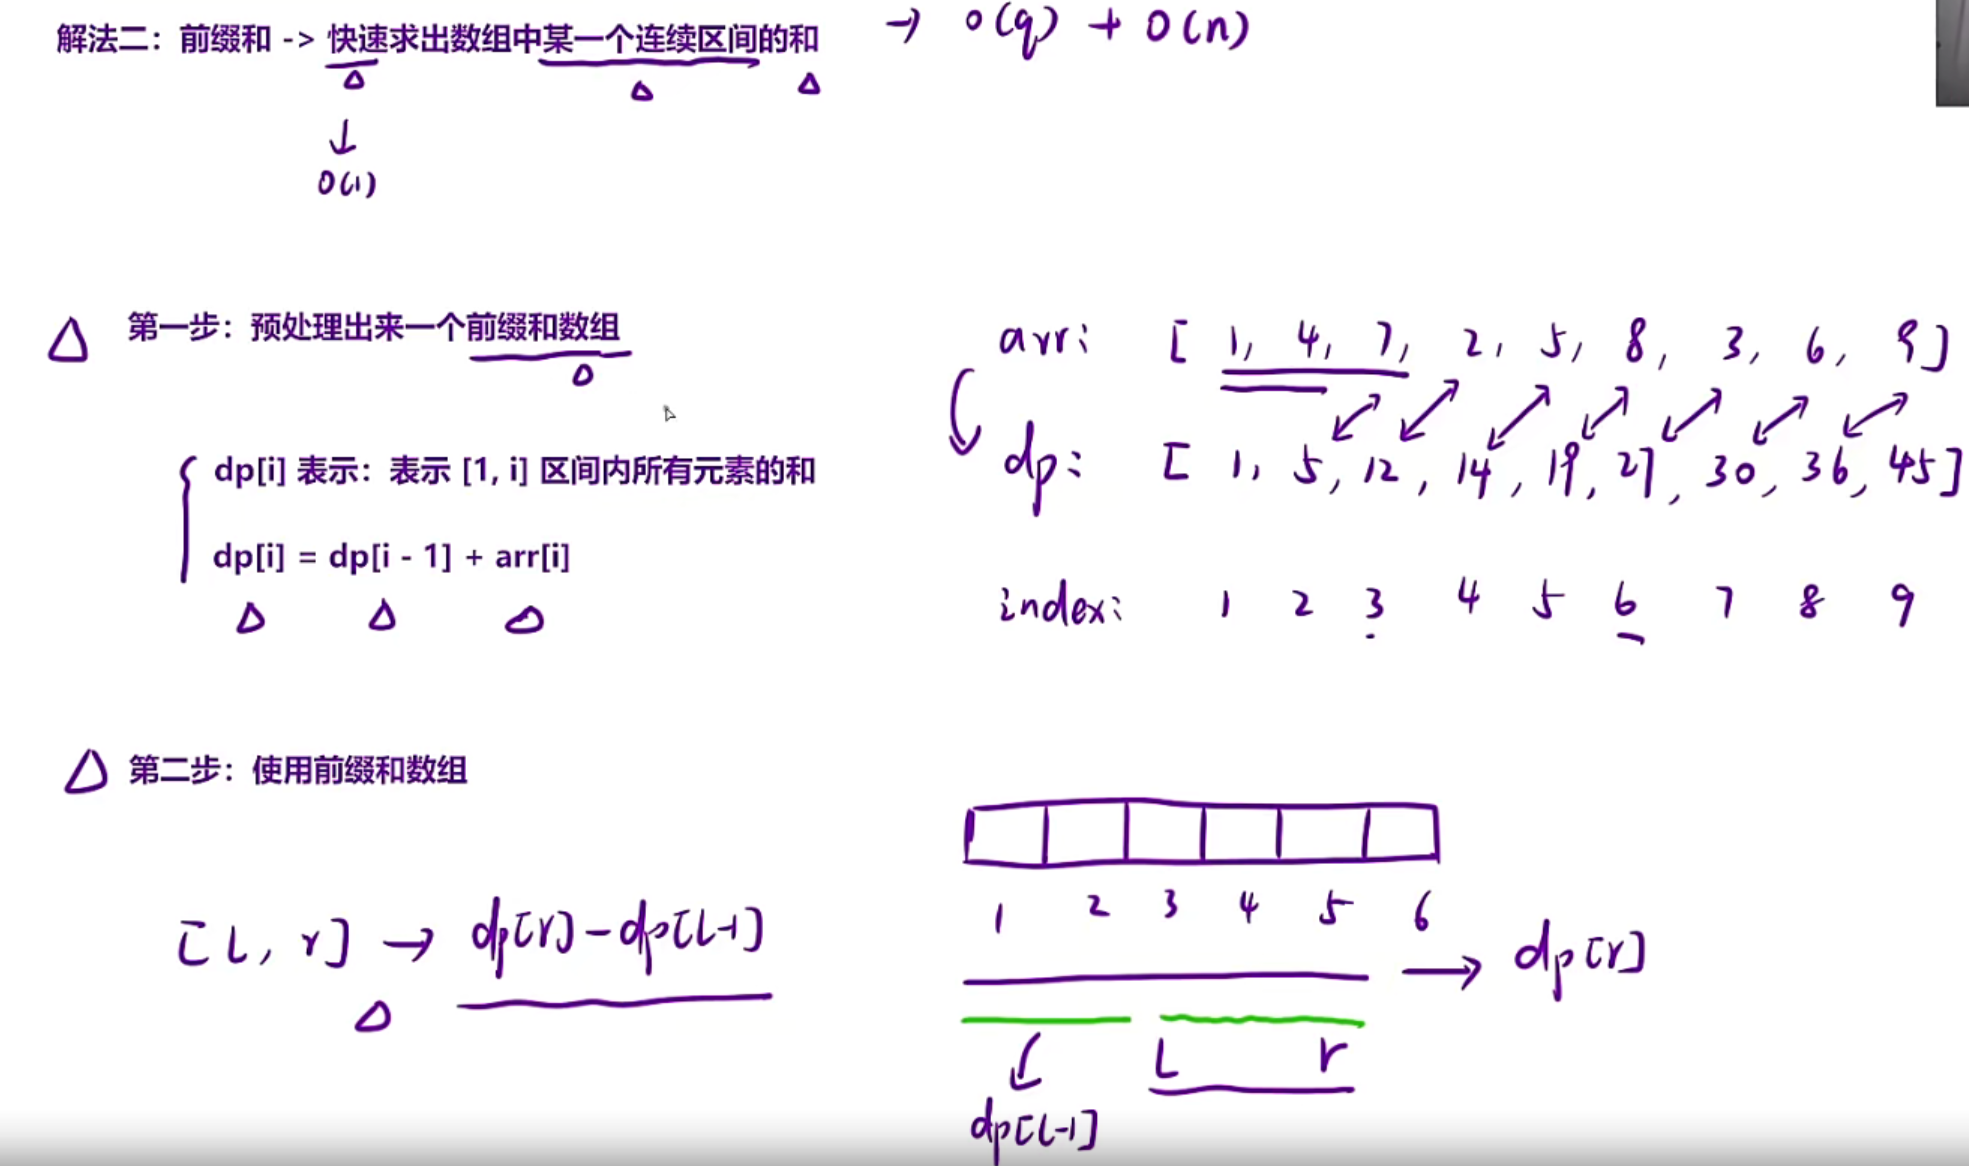 解法二：前缀和 -> 快速求出数组中某一个连续区间的和 → O(q) + O(n)
↓
O(1)
第一步：预处理出来一个前缀和数组
arr: [ 1, 4, 7, 2, 5, 8, 3, 6, 9 ]
dp[i] 表示：表示 [1, i] 区间内所有元素的和
dp: [ 1, 5, 12, 14, 19, 27, 30, 36, 45 ]
dp[i] = dp[i - 1] + arr[i]
index: 1 2 3 4 5 6 7 8 9
第二步：使用前缀和数组
[L, r] → dp[r] - dp[L-1]
1 2 3 4 5 6
→ dp[r]
L r
dp[L-1]